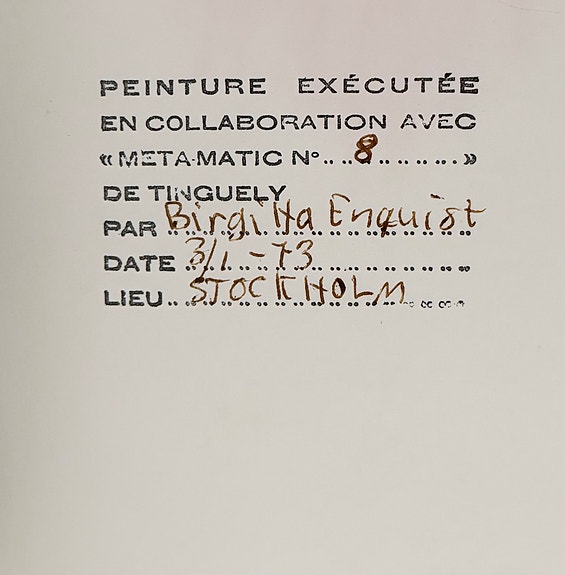 PEINTURE EXÉCUTÉE
EN COLLABORATION AVEC
« META-MATIC N° .. 8 ....... »
DE TINGUELY
PAR Birgitta Enquist
DATE 3/1-73
LIEU.. STOCKHOLM